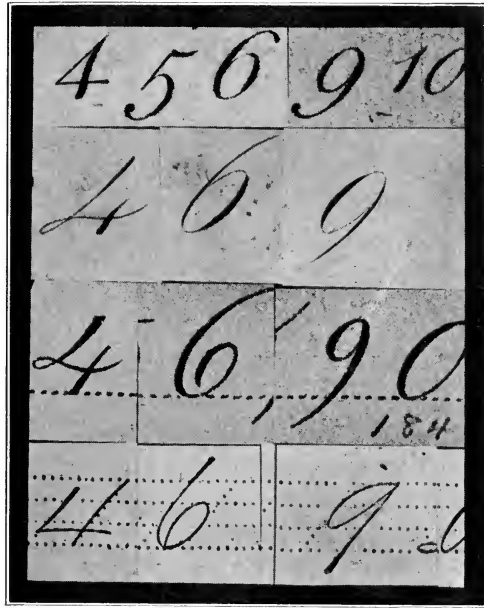 4 5 6 9 10
4 6 9
4 6, 9 0
184
4 6 9